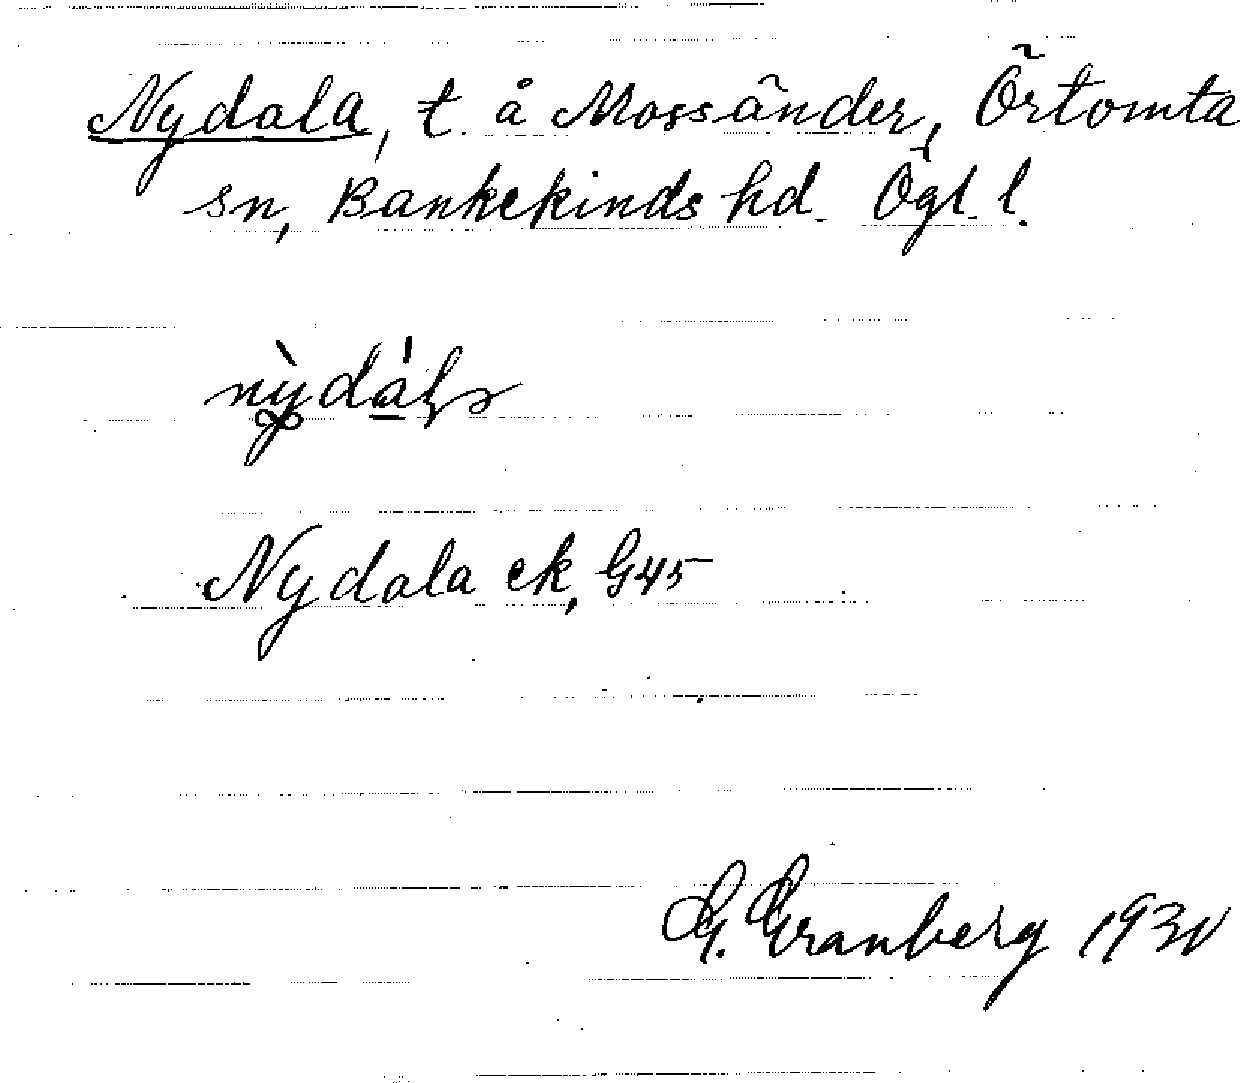 Nydala, t. å Mossänder, Örtomta
sn, Bankekinds hd. Ögl. l.
Nydala ek, G45
G. Granberg 1930